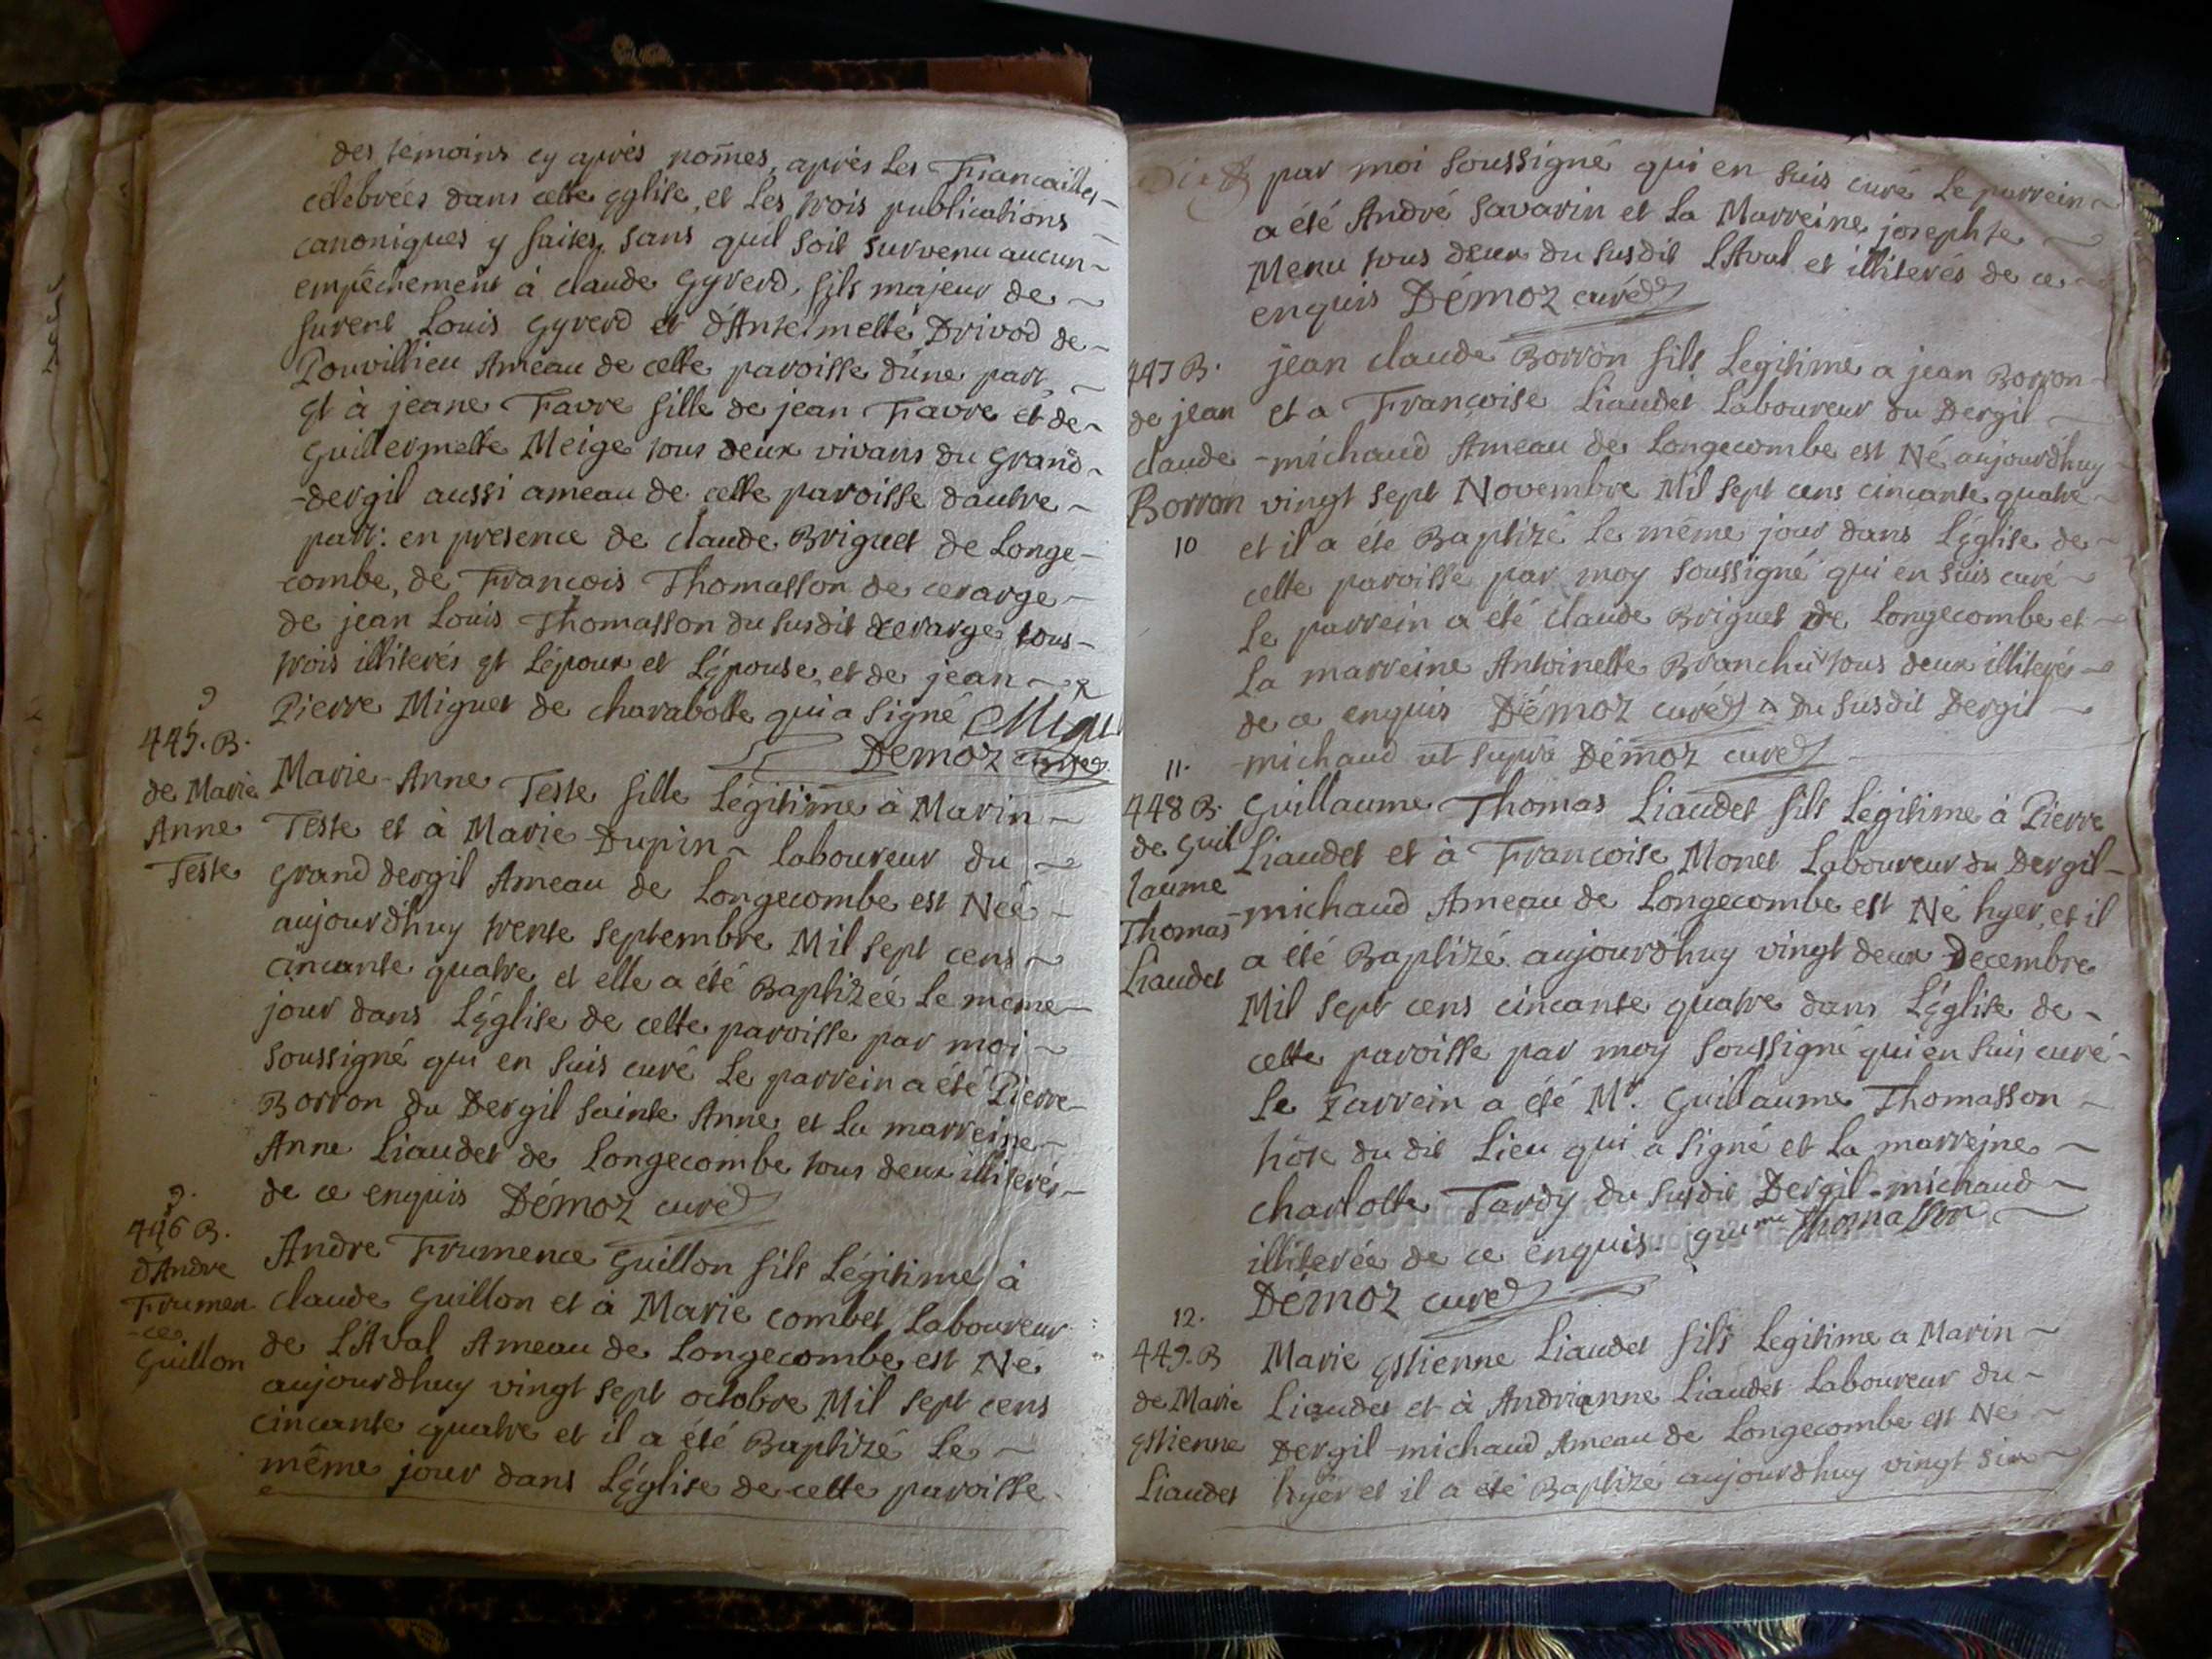 des temoins cy aprés nom̃es, aprés Les Francailles
célebreés dans cette Eglise, et Les trois publications
canoniques y faites, sans quil soit survenu aucun
empéchement à claude Gyrerd, fils majeur de
furent Louis Gyrerd et d'Antelmette Drivod de
Pouvillieu Ameau de cette paroisse d'une part,
Et à jeane Favre fille de jean Favre et de
Guillermette Meige tous deux vivans du Grand
-dergil aussi ameau de cette paroisse d'autre
part: en presence de claude Briguet de Longe-
combe, de Francois Thomasson de cerarge
de jean Louis Thomasson du susdit cerarge tous
trois illiterés Et L'époux et L'épouse, et de jean
Pierre Miguet de charabotte qui a signé Migu
Démoz curé
9
445. B.
de Marie
Anne
Teste
Marie-Anne Teste fille Légitime à Marin
Teste et à Marie Dupin laboureur du
Grand dergil Ameau de Longecombe est Neé
aujourd'huy trente septembre Mil sept cens
cincante quatre et elle a été Baptizeé Le méme
jour dans L'Eglise de cette paroisse par moi
soussigné qui en suis curé Le parrein a été Pierre
Borron du Dergil sainte Anne, et La marreine
Anne Liaudet de Longecombe tous deux illiterés
de ce enquis Démoz curé
9.
446 B.
d'Andre
Frumen
-ce
Guillon
Andre Frumence Guillon fils Légitime à
claude Guillon et à Marie combet, Laboureur
de L'Aval Ameau de Longecombe est Né
aujourd'huy vingt sept octobre Mil sept cens
cincante quatre et il a été Baptizé Le
même jour dans L'Eglise de cette paroisse
par moi soussigné qui en suis curé Le parrein
a été André Savarin et La Marreine josephte
Menu tous deux du susdit L'Aval et illiterés de ce
enquis Démoz curé
447 B.
de jean
claude
Borron
10
jean claude Borron fils Legitime a jean Borron
et a Françoise Liaudet Laboureur du Dergil
-michaud Ameau de Longecombe est Né aujourd'huy
vingt sept Novembre Mil sept cens cincante quatre
et il a été Baptizé Le méme jour dans L'Eglise de
cette paroisse par moy soussigné qui en suis curé
Le parrein a été claude Briguet de Longecombe et
La marreine Antoinette Branchu tous deux illiterés
de ce enquis Démoz curé x Du susdit Dergil
michaud ut supra Démoz curé
11.
448 B.
de Guil
laume
Thomas
Liaudet
Guillaume Thomas Liaudet fils Légitime à Pierre
Liaudet et à Francoise Monet Laboureur du Dergil-
-michaud Ameau de Longecombe est Né hyer, et il
a été Baptizé aujourd'huy vingt deux Decembre
Mil sept cens cincante quatre dans L'Eglise de
cette paroisse par moy soussigné qui en suis curé
Le Parrein a été Mr. Guillaume Thomasson
hôte du dit Lieu qui a signé et La marreine
charlotte Tardy du susdit Dergil-michaud
illitereé de ce enquis. Gume Thomasson
Démoz curé
12.
449. B
de Marie
Estienne
Liaudet
Marie Estienne Liaudet fils Legitime a Marin
Liaudet et à Andrianne Liaudet Laboureur du
Dergil-michaud Ameau de Longecombe est Né
hyer et il a été Baptizé aujourd'huy vingt six